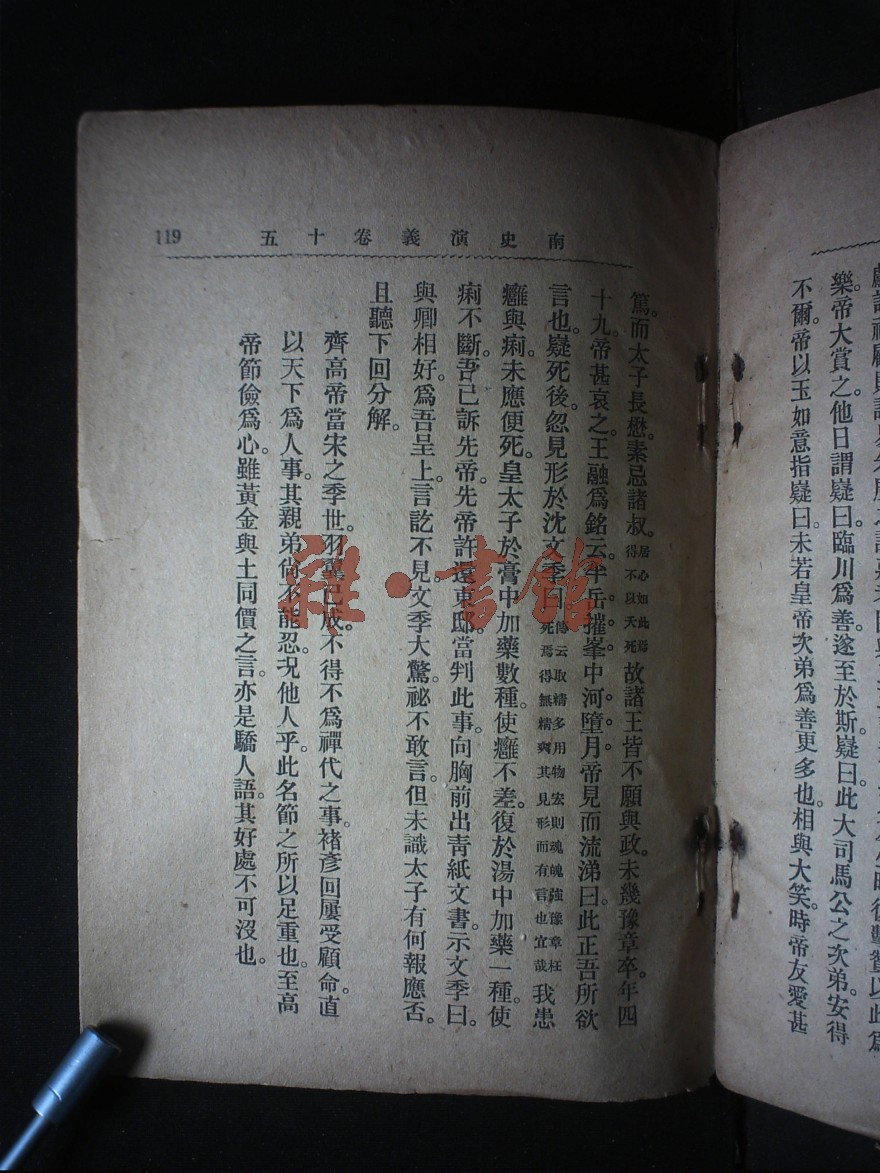 樂帝大賞之他日謂嶷曰。臨川爲善。遂至於斯。嶷曰。此大司馬公之次弟。安得
不爾。帝以玉如意指嶷曰。未若皇帝次弟爲善更多也。相與大笑。時帝友愛甚
119
南史演義卷十五
篤。而太子長懋。素忌諸叔。居心如此焉得不以夭死故諸王皆不願與政。未幾。豫章卒。年四
十九。帝甚哀之。王融爲銘云。半岳摧峯。中河墮月。帝見而流涕曰。此正吾所欲
言也。嶷死後。忽見形於沈文季曰。傳云取精多用物宏則魂魄強豫章枉死焉得無精爽其見形而有言也宜哉我患
癰與痢。未應便死。皇太子於膏中加藥數種。使癰不差。復於湯中加藥一種。使
痢不斷。吾已訴先帝。先帝許還東邸。當判此事。向胸前出靑紙文書。示文季曰。
與卿相好。爲吾呈上。言訖不見。文季大驚。祕不敢言。但未識太子有何報應否。
且聽下回分解。
齊高帝當宋之季世。羽翼已成。不得不爲禪代之事。褚彥回屢受顧命。直
以天下爲人事。其親弟尙不能忍。况他人乎。此名節之所以足重也。至高
帝節儉爲心。雖黃金與土同價之言。亦是驕人語。其好處不可沒也。
雜·書館